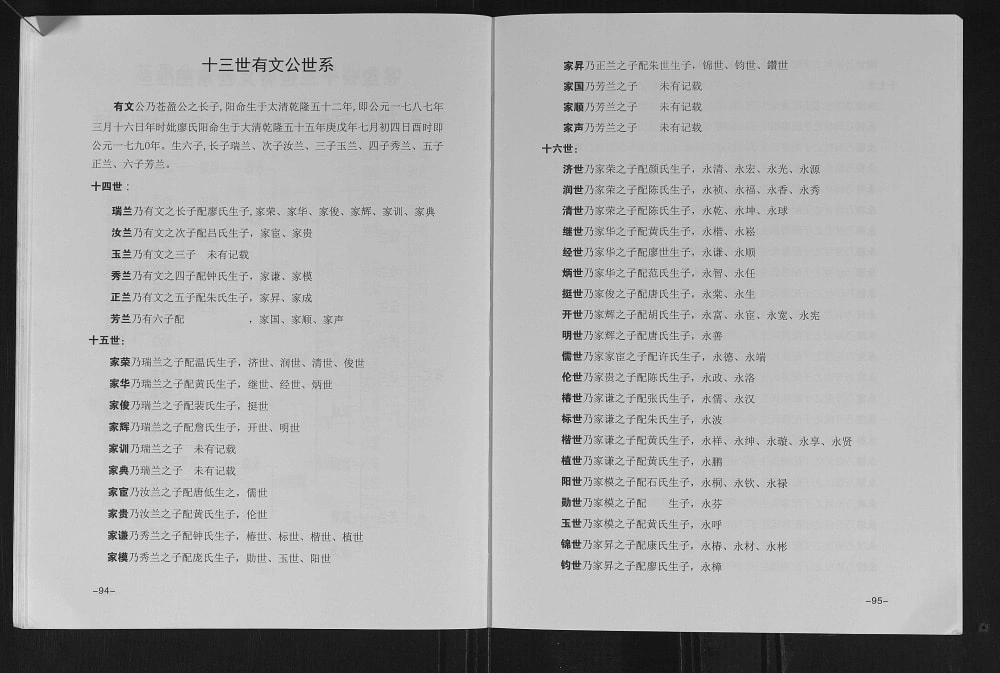 十三世有文公世系
有文公乃苍盈公之长子,阳命生于太清乾隆五十二年,即公元一七八七年
三月十六日午时妣廖氏阳命生于大清乾隆五十五年庚戊年七月初四日酉时即
公元一七九0年。生六子,长子瑞兰、次子汝兰、三子玉兰、四子秀兰、五子
正兰、六子芳兰。
十四世：
瑞兰乃有文之长子配廖氏生子,家荣、家华、家俊、家辉、家训、家典
汝兰乃有文之次子配吕氏生子，家宦、家贵
玉兰乃有文之三子 未有记载
秀兰乃有文之四子配钟氏生子，家谦、家模
正兰乃有文之五子配朱氏生子，家昇、家成
芳兰乃有六子配 ，家国、家顺、家声
十五世：
家荣乃瑞兰之子配温氏生子，济世、润世、清世、俊世
家华乃瑞兰之子配黄氏生子，继世、经世、炳世
家俊乃瑞兰之子配裴氏生子，挺世
家辉乃瑞兰之子配詹氏生子，开世、明世
家训乃瑞兰之子 未有记载
家典乃瑞兰之子 未有记载
家宦乃汝兰之子配唐低生之，儒世
家贵乃汝兰之子配黄氏生子，伦世
家谦乃秀兰之子配钟氏生子，椿世、标世、楷世、植世
家模乃秀兰之子配庞氏生子，勋世、玉世、阳世
-94-
家昇乃正兰之子配朱世生子，锦世、钧世、鑽世
家国乃芳兰之子 未有记载
家顺乃芳兰之子 未有记载
家声乃芳兰之子 未有记载
十六世：
济世乃家荣之子配颜氏生子，永清、永宏、永光、永源
润世乃家荣之子配陈氏生子，永祯、永福、永香、永秀
清世乃家荣之子配陈氏生子，永乾、永坤、永球
继世乃家华之子配黄氏生子，永楷、永崧
经世乃家华之子配廖世生子，永谦、永顺
炳世乃家华之子配范氏生子，永智、永任
挺世乃家俊之子配唐氏生子，永棠、永生
开世乃家辉之子配胡氏生子，永富、永宦、永宽、永宪
明世乃家辉之子配唐氏生子，永善
儒世乃家家宦之子配许氏生子，永德、永端
伦世乃家贵之子配陈氏生子，永政、永洛
椿世乃家谦之子配张氏生子，永儒、永汉
标世乃家谦之子配朱氏生子，永波
楷世乃家谦之子配黄氏生子，永祥、永绅、永璇、永享、永贤
植世乃家谦之子配黄氏生子，永鹏
阳世乃家模之子配石氏生子，永桐、永钦、永禄
勋世乃家模之子配 生子，永芬
玉世乃家模之子配黄氏生子，永呼
锦世乃家昇之子配康氏生子，永椿、永材、永彬
钧世乃家昇之子配廖氏生子，永樟
-95-